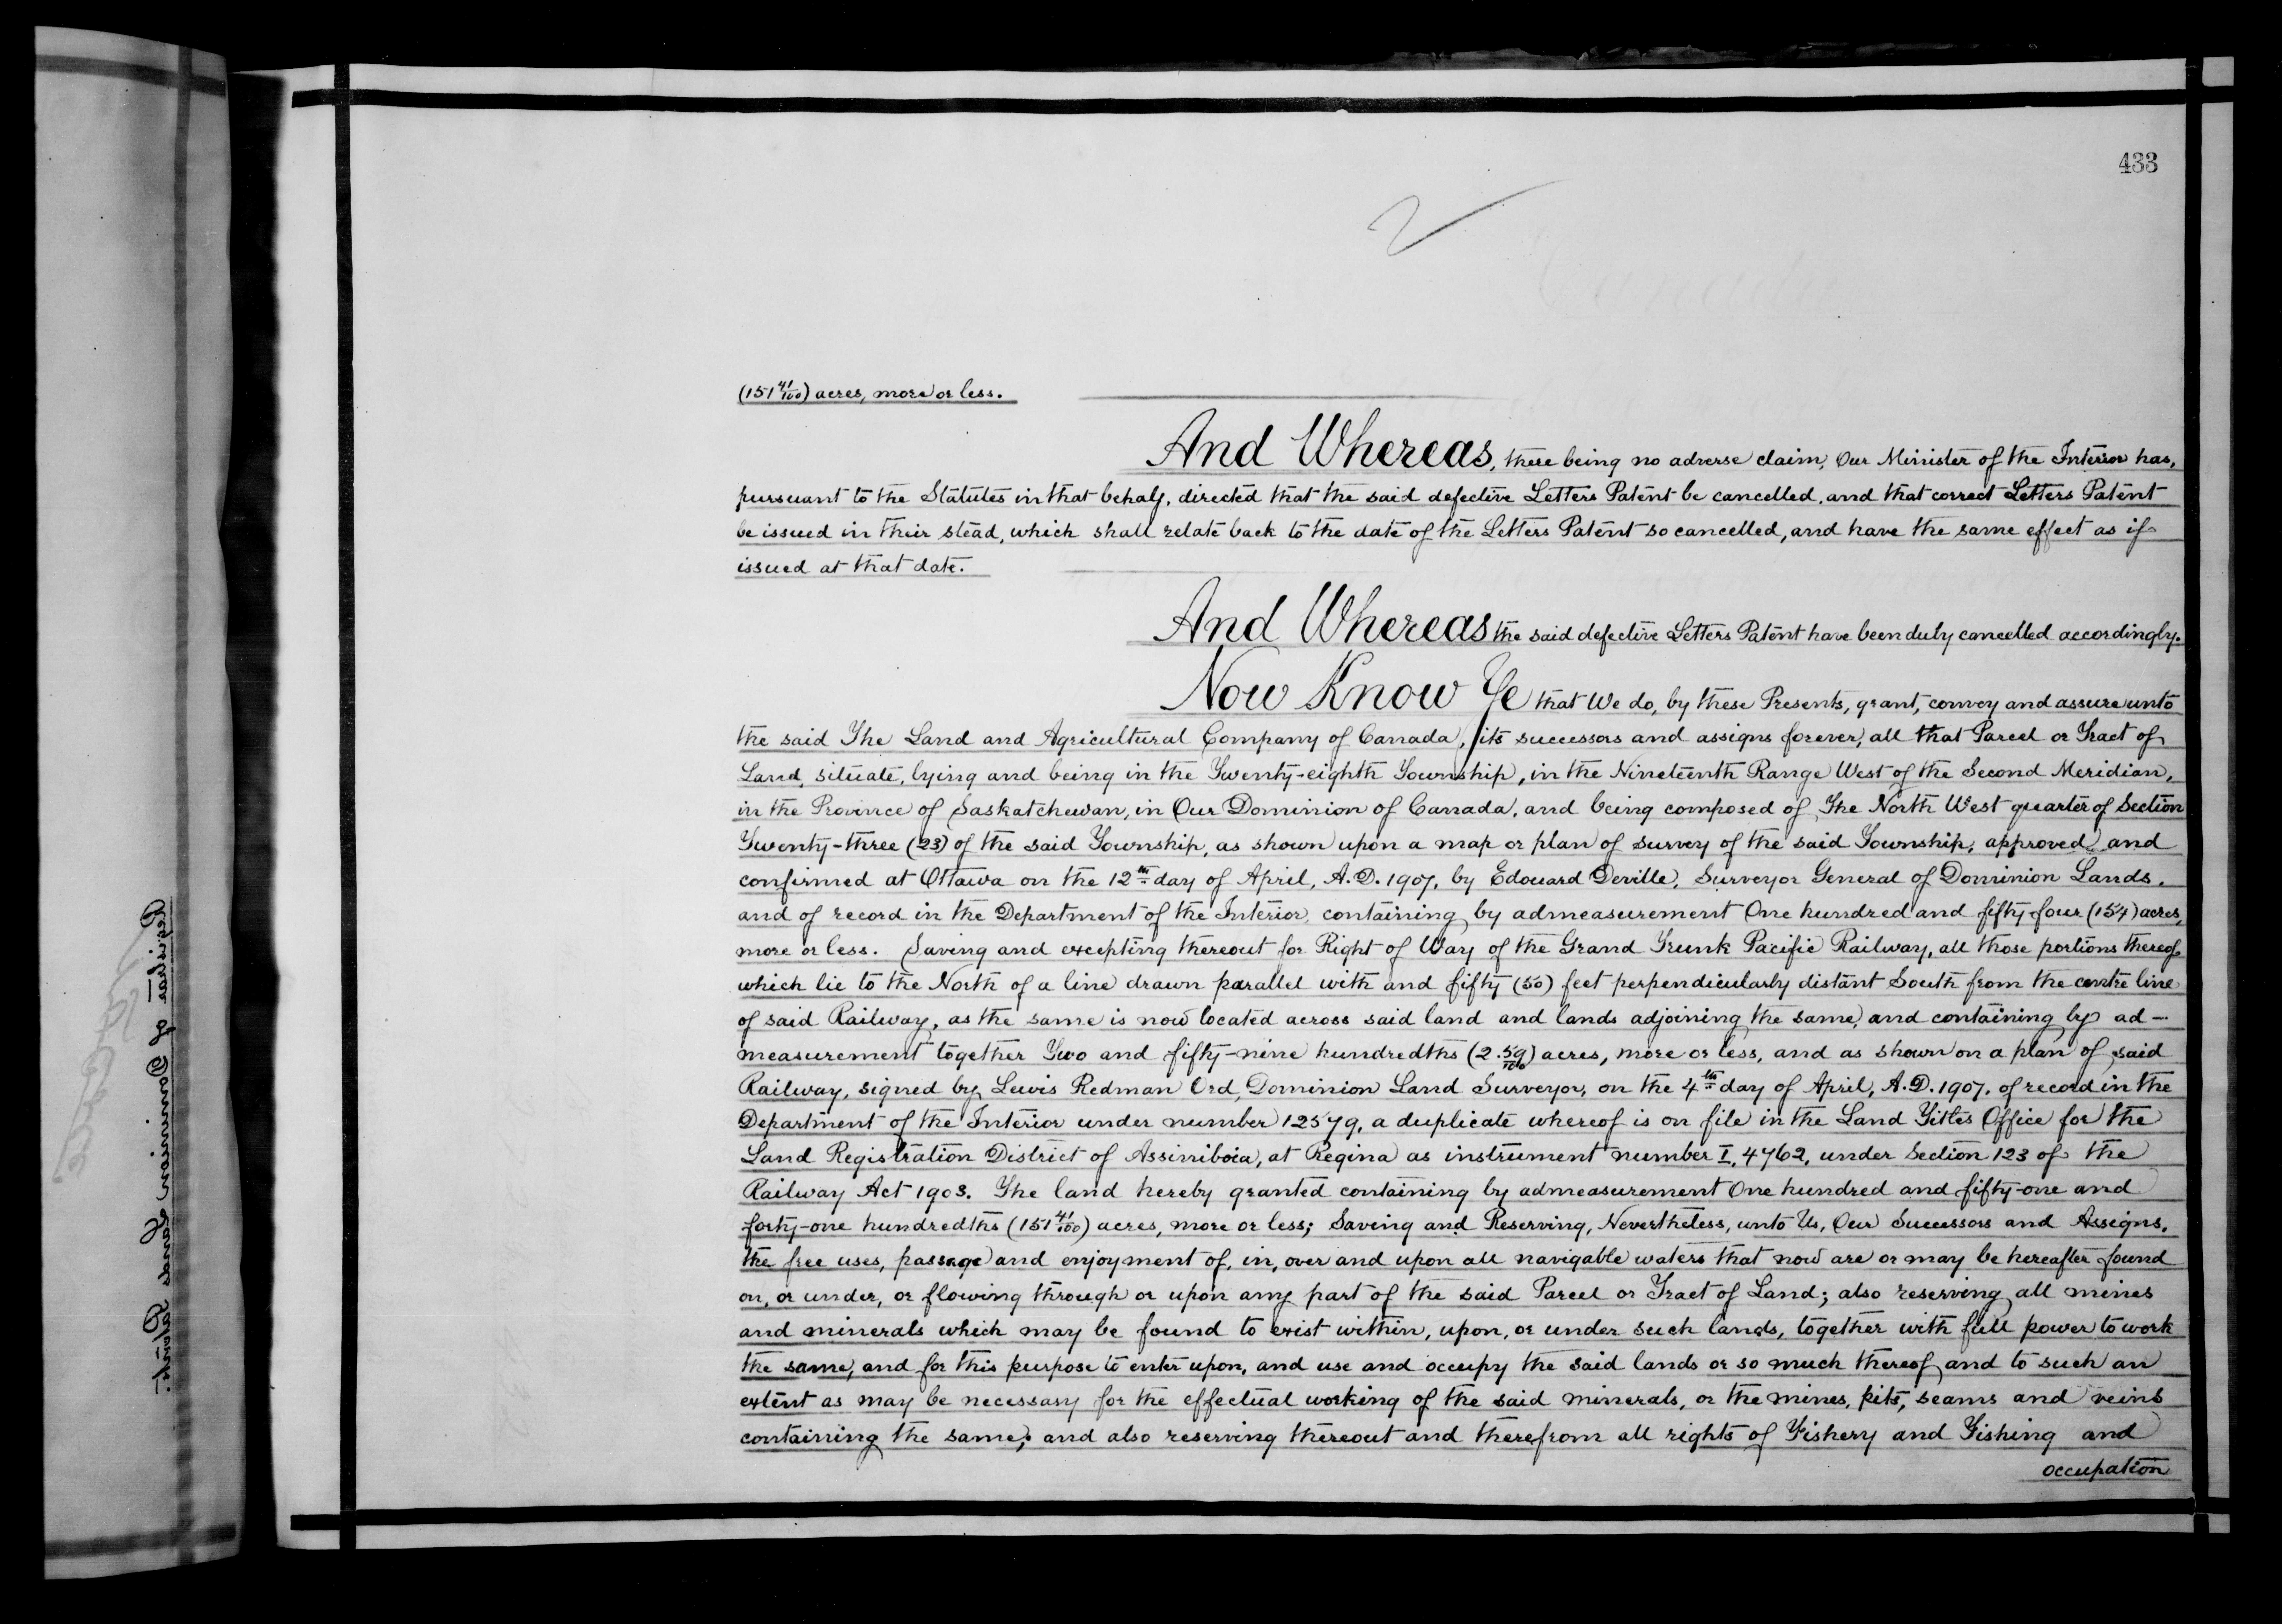 433
(151 41/100) acres, more or less.
And Whereas, there being no adverse claim, Our Minister of the Interior has,
pursuant to the Statutes in that behalf, directed that the said defective Letters Patent be cancelled, and that correct Letters Patent
be issued in their stead, which shall relate back to the date of the Letters Patent so cancelled, and have the same effect as if
issued at that date.
And Whereas the said defective Letters Patent have been duly cancelled accordingly.
Now Know Ye that We do, by these Presents, grant, convey and assure unto
the said The Land and Agricultural Company of Canada, its successors and assigns forever, all that Parcel or Tract of
Land, situate, lying and being in the Twenty-eighth Township, in the Nineteenth Range West of the Second Meridian,
in the Province of Saskatchewan, in Our Dominion of Canada, and being composed of The North West quarter of Section
Twenty-three (23) of the said Township, as shown upon a map or plan of survey of the said Township, approved and
confirmed at Ottawa on the 12th day of April, A.D. 1907, by Edouard Deville, Surveyor General of Dominion Lands,
and of record in the Department of the Interior, containing by admeasurement One hundred and fifty-four (154) acres,
more or less. Saving and excepting thereout for Right of Way of the Grand Trunk Pacific Railway, all those portions thereof
which lie to the North of a line drawn parallel with and fifty (50) feet perpendicularly distant South from the centre line
of said Railway, as the same is now located across said land and lands adjoining the same, and containing by ad-
measurement together Two and fifty-nine hundredths (2.59/100) acres, more or less, and as shown on a plan of said
Railway, signed by Lewis Redman Ord, Dominion Land Surveyor, on the 4th day of April, A.D. 1907, of record in the
Department of the Interior under number 12579, a duplicate whereof is on file in the Land Titles Office for the
Land Registration District of Assiniboia, at Regina as instrument number I, 4762, under Section 123 of the
Railway Act 1903. The land hereby granted containing by admeasurement One hundred and fifty-one and
forty-one hundredths (151 41/100) acres, more or less; Saving and Reserving, Nevertheless, unto Us, Our Successors and Assigns,
the free uses, passage and enjoyment of, in, over and upon all navigable waters that now are or may be hereafter found
on, or under, or flowing through or upon any part of the said Parcel or Tract of Land; also reserving all mines
and minerals which may be found to exist within, upon, or under such lands, together with full power to work
the same, and for this purpose to enter upon, and use and occupy the said lands or so much thereof and to such an
extent as may be necessary for the effectual working of the said minerals, or the mines, pits, seams and veins
containing the same; and also reserving thereout and therefrom all rights of Fishery and Fishing and
occupation
Registrar of Dominion Lands Patents.